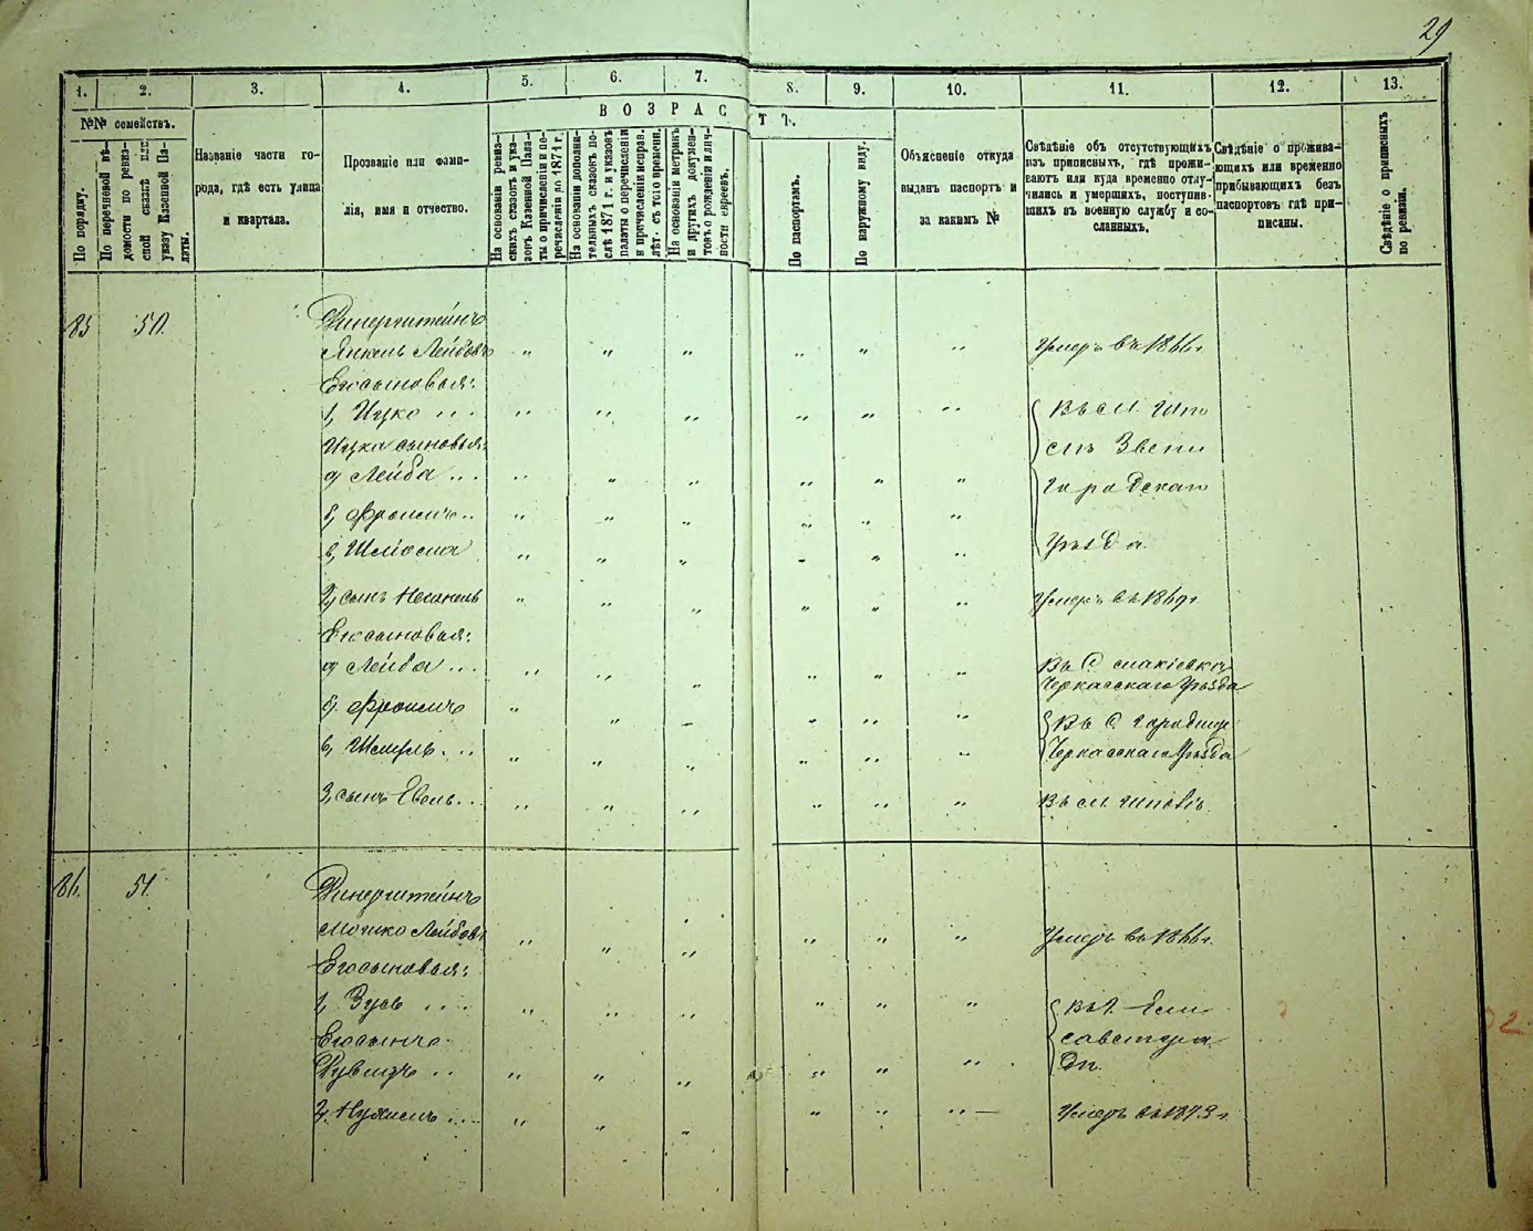 29
1. 2. 3. 4. 5. 6. 7. 8. 9. 10. 11. 12. 13.
№№ семействъ.
По порядку.
По перечневой вѣ-
домости по ревиз-
ской сказкѣ или
указу Казенной Па-
латы.
Названіе части го-
рода, гдѣ есть улица
и квартала.
Прозваніе или фами-
лія, имя и отчество.
ВОЗРАСТЪ.
На основаніи ревиз-
скихъ сказокъ и ука-
зовъ Казенной Пала-
ты о причисленіи и пе-
речисленіи до 1871 г.
На основаніи дополни-
тельныхъ сказокъ по-
слѣ 1871 г. и указовъ
палаты о перечисленіи
и причисленіи исправ.
лѣт. съ того времени.
На основаніи метрикъ
и другихъ докумен-
товъ о рожденіи и лич-
ности евреевъ.
По паспортамъ.
По наружному виду.
Объясненіе откуда
выданъ паспортъ и
за какимъ №
Свѣдѣніе объ отсутствующихъ
изъ приписныхъ, гдѣ прожи-
ваютъ или куда временно отлу-
чились и умершихъ, поступив-
шихъ въ военную службу и со-
сланныхъ.
Свѣдѣніе о прожива-
ющихъ или временно
прибывающихъ безъ
паспортовъ гдѣ при-
писаны.
Свѣдѣніе о приписныхъ
по ревизіи.
85 50. Динерштейнъ
Янкель Лейбовъ " " " " " " Умеръ въ 1866 г.
Его сыновья:
1, Ицко " " " " " " Въ м. Шпо
Ицка сыновья: емъ Звени
а, Лейба " " " " " " городскаго
б, Фроимъ " " " " " "
в, Шлиома " " " " " " Уѣзда
2, сынъ " " " " " " Умеръ въ 1869 г.
Его сыновья:
а, Лейба " " " " " Въ С.
Черкасскаго Уѣзда
б, Фроимъ " " " " " " Въ С. Городище
в, Шмуль " " " " " " Черкасскаго Уѣзда
3, сынъ " " " " " " Въ м. Шполѣ
86. 51. Динерштейнъ
Мошко Лейбовъ " " " " " " Умеръ въ 1866 г.
Его сыновья:
1, Зусь " " " " " " Въ г. Ели
Его сынъ саветгра
Рувинъ " " " " " " дѣ.
2, Нухимъ " " " " " " Умеръ въ 1873 г.